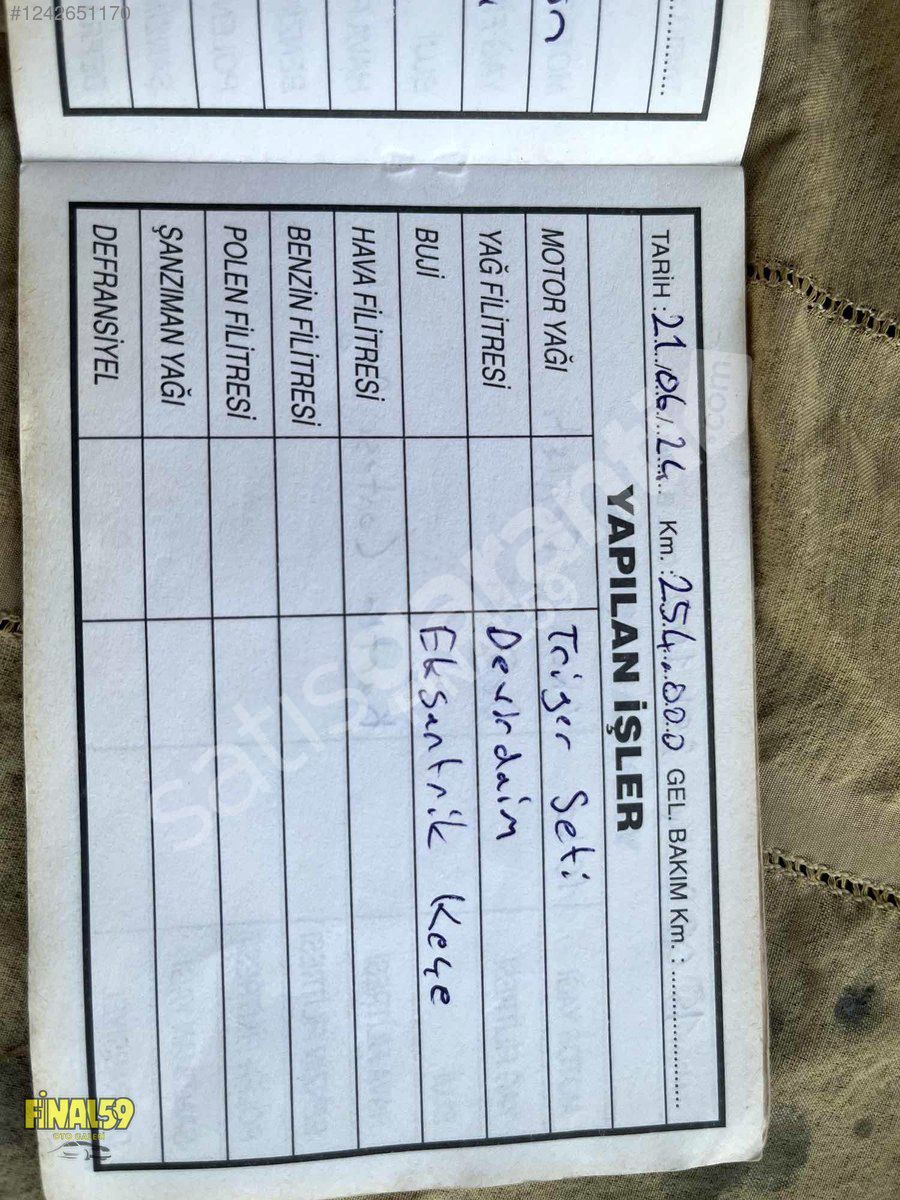 #1242651170
TARİH : 21/06/24 Km. : 254.000 GEL. BAKIM Km. :
YAPILAN İŞLER
MOTOR YAĞI Triger Seti
YAĞ FİLİTRESİ Devirdaim
BUJİ Eksantrik Keçe
HAVA FİLİTRESİ
BENZİN FİLİTRESİ
POLEN FİLİTRESİ
ŞANZIMAN YAĞI
DEFRANSİYEL
FİNAL59
OTO GALERİ